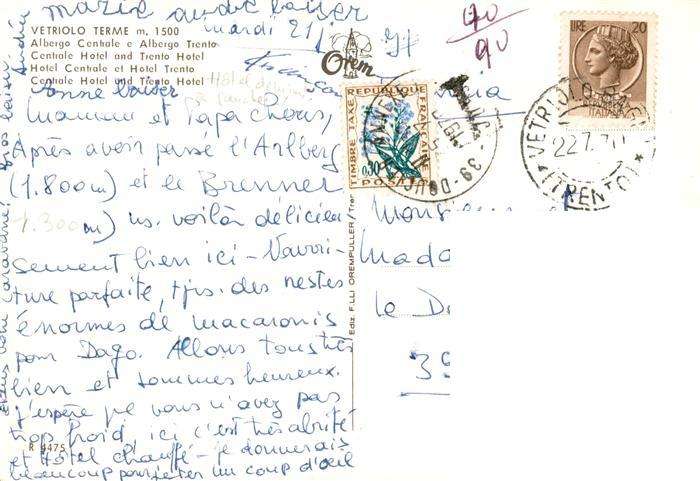 marie andré baiser
mardi 21/
VETRIOLO TERME m. 1500
Albergo Centrale e Albergo Trento
Centrale Hotel and Trento Hotel
Hotel Centrale et Hotel Trento
Centrale Hotel und Trento Hotel
Orem
70
90
T
LIRE 20
ITALIANE
VETRIOLO
22.7.70
(TRENTO)
TIMBRE TAXE
REPUBLIQUE FRANÇAISE
0,30
POSTES
39-D
Bonne baiser
Maman et Papa chéris,
Après avoir passé l'Arlberg
(1.800m) et le Brenner
1.300m) ns. voilà délicieu
sement bien ici - Nourri-
ture parfaite, tjrs. des restes
énormes de macaronis
pour Dago. Allons tous très
bien et sommes heureux.
J'espère que vous n'avez pas
trop froid, ici c'est très abrité
et Hôtel chauffé - je donnerais
beaucoup pour jeter un coup d'oeil
caravane!
Gros baisers
André
R 4475
Ediz. F.LLI OREMPULLER/Tren
Monsieur et
Mada
le D
39